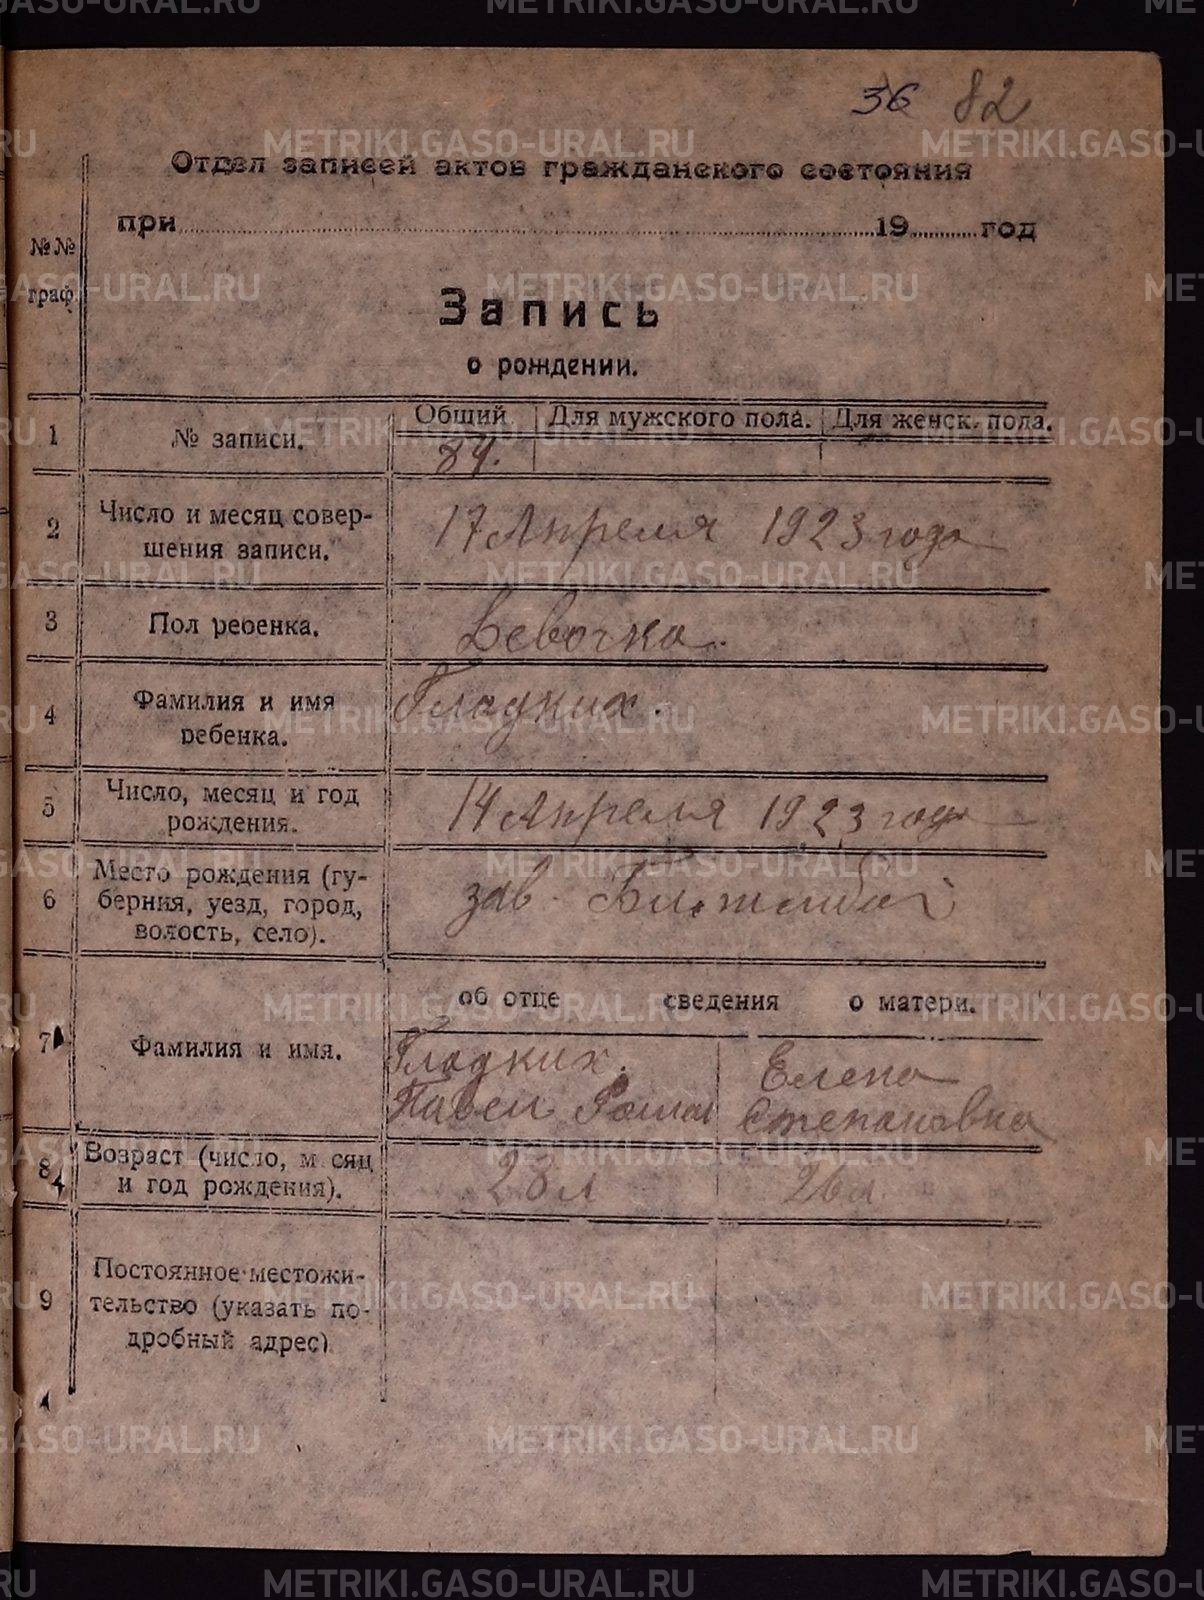 36 82
Отдел записей актов гражданского состояния
при 19 год
№№
граф.
Запись
о рождении.
1 № записи. Общий Для мужского пола. Для женск. пола.
84.
2 Число и месяц совер-
шения записи. 17 Апреля 1923 года
3 Пол ребенка. Девочка.
4 Фамилия и имя
ребенка. Гладких.
5 Число, месяц и год
рождения. 14 Апреля 1923 года
6 Место рождения (гу-
берния, уезд, город,
волость, село). зав.
об отце сведения о матери.
7 Фамилия и имя. Гладких. Елена
Павел Роман Степановна
8 Возраст (число, м сяц
и год рождения). 28 л 26 л.
9 Постоянное местожи-
тельство (указать по-
дробный адрес)
METRIKI.GASO-URAL.RU